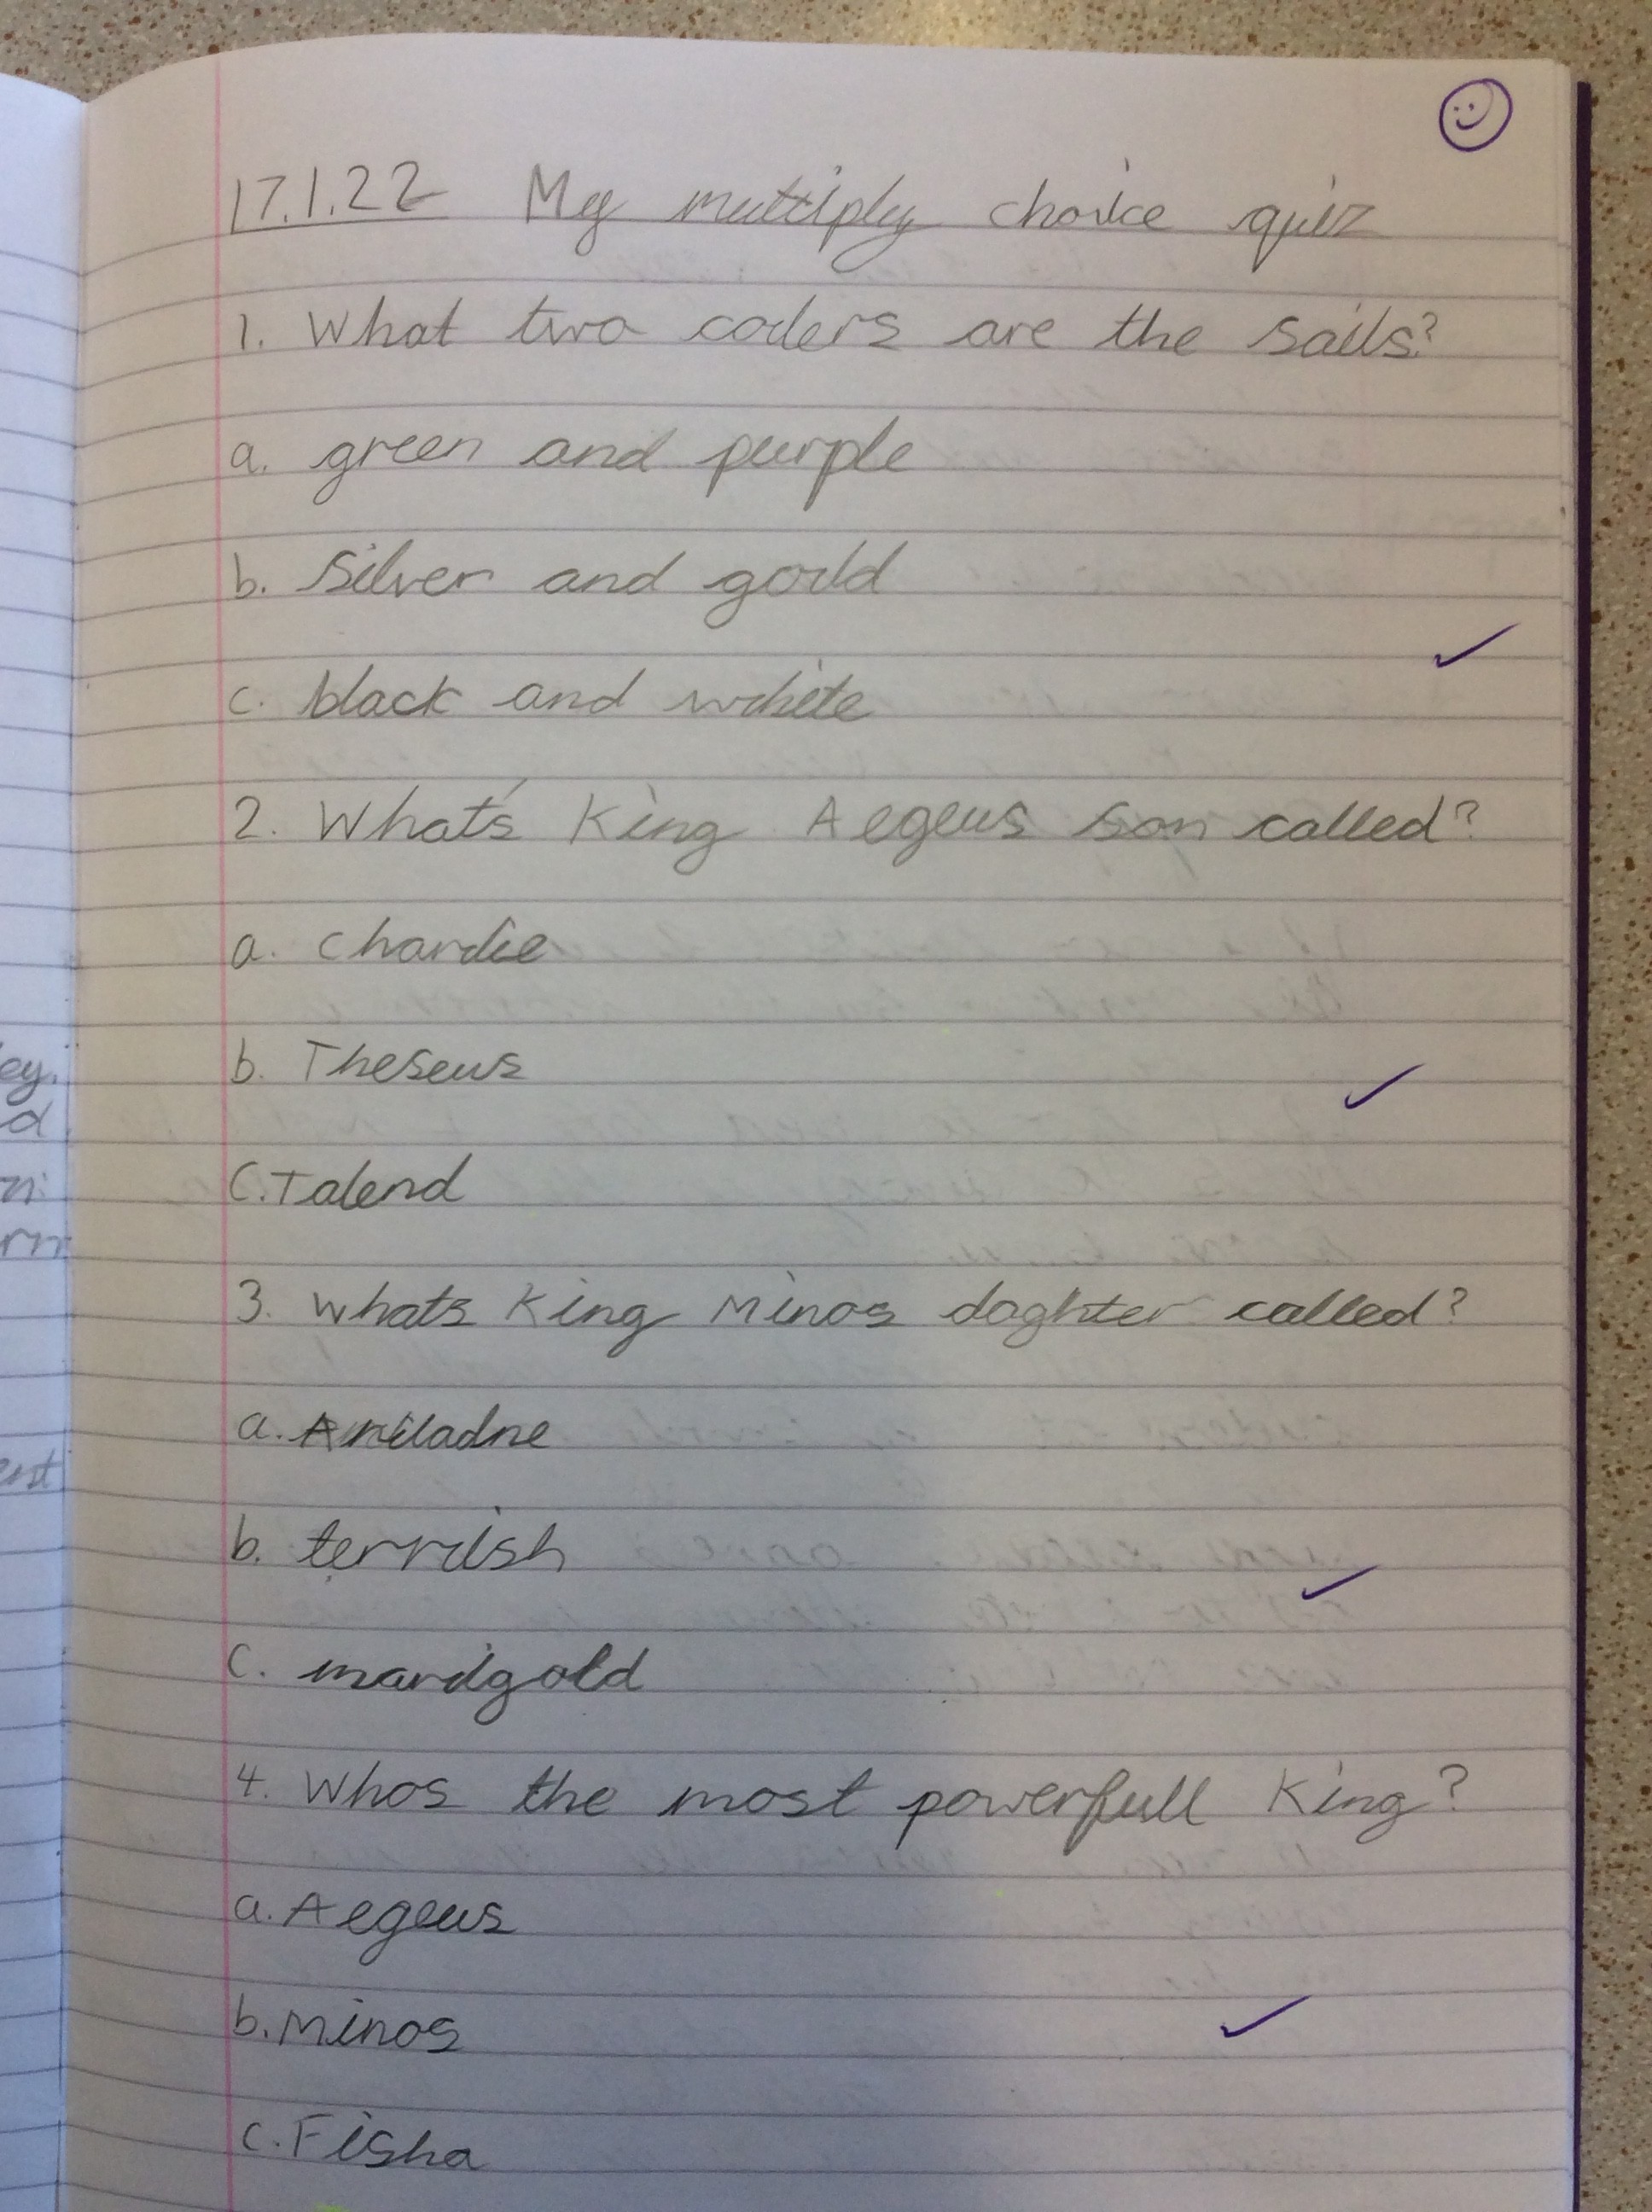 17.1.22 My multiply choice quiz
1. What two coulers are the sails?
a. green and purple
b. Silver and gould
c. black and white
2. What's King Aegeus son called?
a. Charlie
b. Theseus
C. Talend
3. Whats King Minos doghter called?
a. Ariladne
b. terrish
c. marigold
4. Whos the most powerfull King?
a. Aegeus
b. Minos
c. Fisha
ey.
d
rn
est